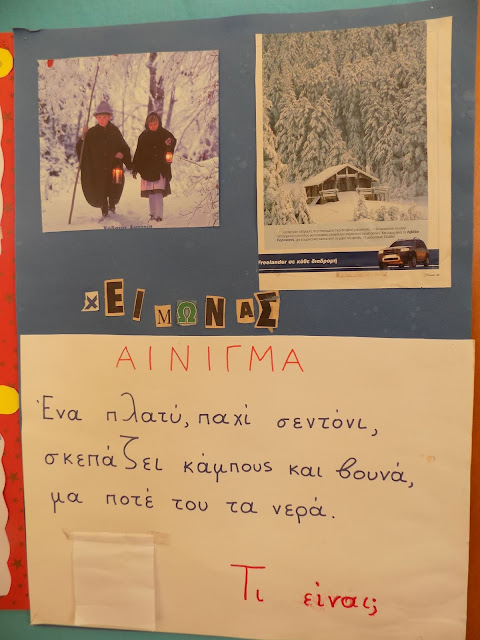 Freelander σε κάθε διαδρομή
ΧΕΙΜΩΝΑΣ
ΑΙΝΙΓΜΑ
Ένα πλατύ, παχί σεντόνι,
σκεπάζει κάμπους και βουνά,
μα ποτέ του τα νερά.
Τι είναι;